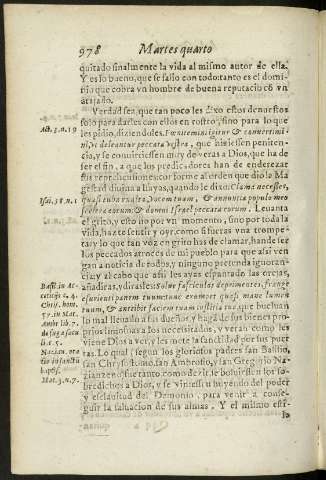 978 Martes quarto
quitado finalmente la vida al mismo autor de ella.
Y es lo bueno, que se salio con todo: tanto es el domi
nio que cobra vn hombre de buena reputació cō vn
atajado.
Verdad sea, que tan poco les dixo estos denuestos
solo para darles con ellos en rostro, sino para lo que
les pidio, diziendoles:
Act. 3.n.19
ni, vt deleantur peccata vestra, que hiziessen peniten-
cia, y se conuirtiessen muy de veras a Dios, que ha de
ser el fin, a que los predicadores han de enderezar
sus reprehensiones: conforme al orden que dio la Ma
gestad diuina a Isayas, quando le dixo: Clama ne cesses,
Isai. 58.n.1
quasi tuba exalta vocem tuam, & annuntia populo meo
scelera eorum: & domui Israel peccata eorum. Leuanta
el grito, y esto no por momento, sino por toda la
vida, hazte sentir y oyr, como si fueras vna trompe-
ta: y lo que tan voz en grito has de clamar, han de ser
los peccados atroces de mi pueblo para que assi ven
gan a noticia de todos, y ninguno pretenda ignoran-
cia; y al cabo que assi les ayas espantado las orejas,
añadiras, y dirasles: Solue fasciculos deprimentes, frange
esurienti panem tuum: tunc erumpet quasi mane lumen
tuum, & anteibit faciem tuam iustitia tua. que bueluan
lo mal lleuado a sus dueños, y haga de sus bienes pro-
prios limosnas a los necessitados, y veran como les
viene Dios a ver, y les mete la sanctidad por sus puer
tas. Lo qual, segun los gloriosos padres san Basilio,
san Chrysostomo, san Ambrosio, y san Gregorio Na-
zianzeno, fue tanto como dezir, se boluiessen los so-
bredichos a Dios, y se viniessen huyendo del poder
y esclauitud del Demonio, para venir a conse-
guir la saluacion de sus almas. Y el mismo esti-
lo
Chris. hom.
Amb. lib. 7.
Nazian. ora
Mat. 3.n.7.